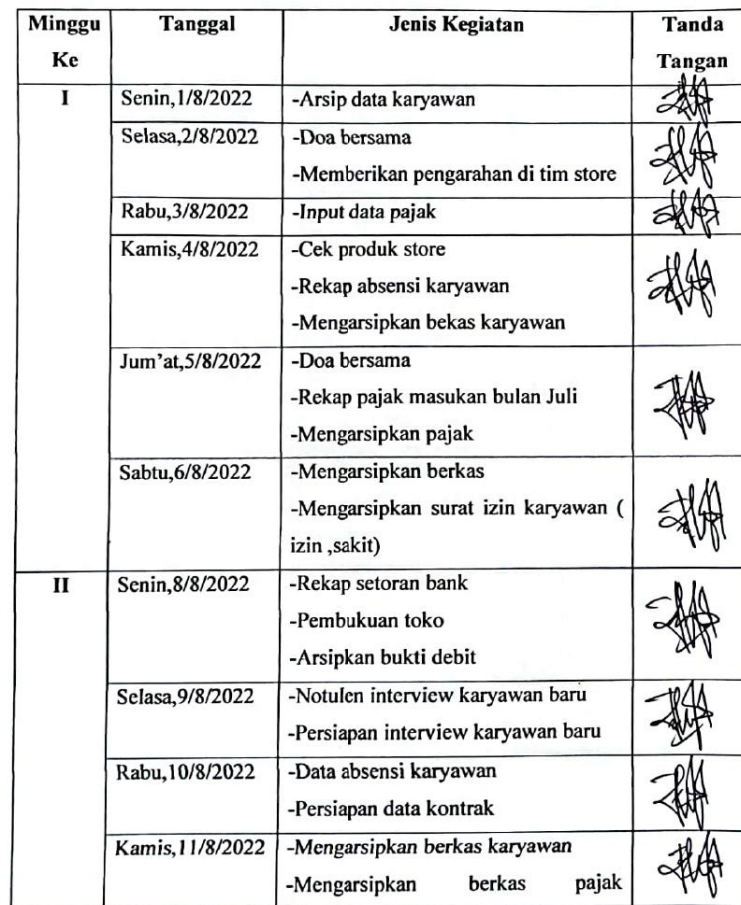 Minggu Ke Tanggal Jenis Kegiatan Tanda Tangan
I Senin,1/8/2022 -Arsip data karyawan
Selasa,2/8/2022 -Doa bersama
-Memberikan pengarahan di tim store
Rabu,3/8/2022 -Input data pajak
Kamis,4/8/2022 -Cek produk store
-Rekap absensi karyawan
-Mengarsipkan bekas karyawan
Jum'at,5/8/2022 -Doa bersama
-Rekap pajak masukan bulan Juli
-Mengarsipkan pajak
Sabtu,6/8/2022 -Mengarsipkan berkas
-Mengarsipkan surat izin karyawan (
izin ,sakit)
II Senin,8/8/2022 -Rekap setoran bank
-Pembukuan toko
-Arsipkan bukti debit
Selasa,9/8/2022 -Notulen interview karyawan baru
-Persiapan interview karyawan baru
Rabu,10/8/2022 -Data absensi karyawan
-Persiapan data kontrak
Kamis,11/8/2022 -Mengarsipkan berkas karyawan
-Mengarsipkan berkas pajak